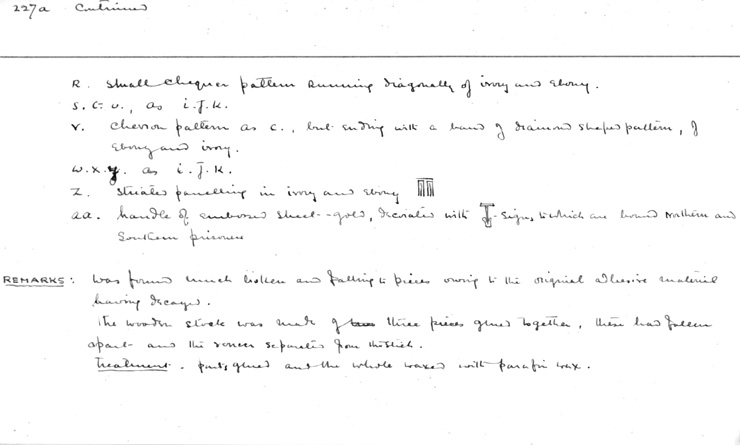 227a Continued
R. Small chequer pattern running diagonally of ivory and ebony.
S. t. u., as i. J. K.
V. Chevron pattern as C., but ending with a band of diamond shaped pattern, of
Ebony and ivory.
W. X. y. as i. J. K.
Z. Striated panelling in ivory and Ebony
aa. handle of embossed sheet-gold, decorated with -signs, to which are bound Northern and
Southern prisoners
REMARKS: Was found much broken and falling to pieces owing to the original adhesive material
having decayed.
The wooden stock was made of three pieces glued together, these had fallen
apart and the veneer separated from the stick.
Treatment. parts glued and the whole waxed with parafin wax.